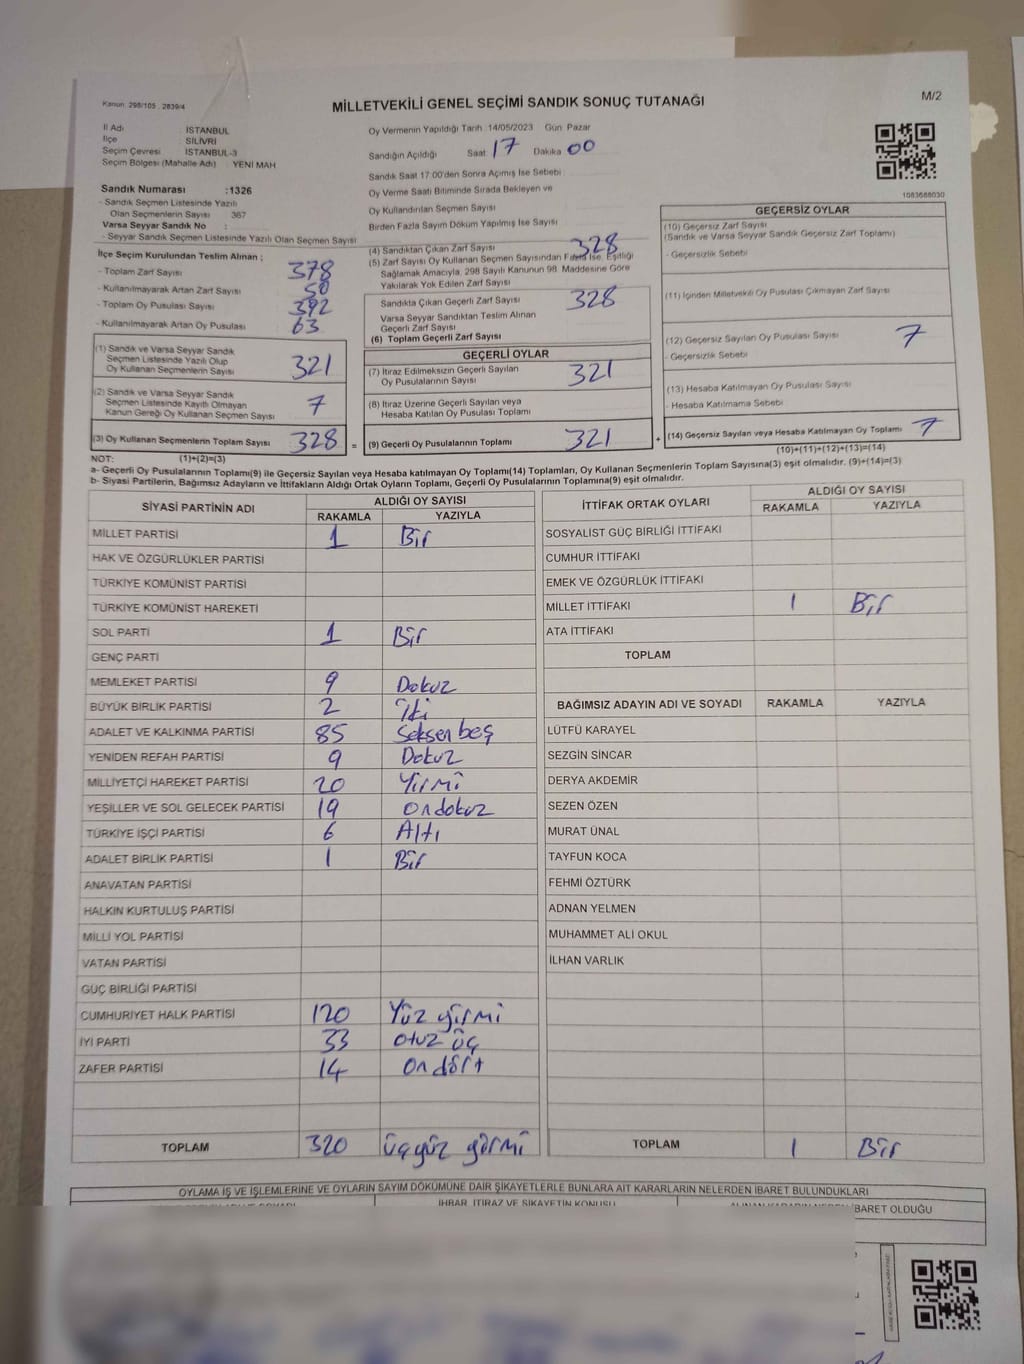 Kanun: 298/105 , 2839/4
MİLLETVEKİLİ GENEL SEÇİMİ SANDIK SONUÇ TUTANAĞI
M/2
İl Adı İSTANBUL
İlçe SİLİVRİ
Seçim Çevresi İSTANBUL-3
Seçim Bölgesi (Mahalle Adı) YENİ MAH
Sandık Numarası :1326
- Sandık Seçmen Listesinde Yazılı
Olan Seçmenlerin Sayısı 367
Varsa Seyyar Sandık No :
- Seyyar Sandık Seçmen Listesinde Yazılı Olan Seçmen Sayısı
İlçe Seçim Kurulundan Teslim Alınan ;
- Toplam Zarf Sayısı 378
- Kullanılmayarak Artan Zarf Sayısı 50
- Toplam Oy Pusulası Sayısı 392
- Kullanılmayarak Artan Oy Pusulası 63
(1) Sandık ve Varsa Seyyar Sandık
Seçmen Listesinde Yazılı Olup
Oy Kullanan Seçmenlerin Sayısı 321
(2) Sandık ve Varsa Seyyar Sandık
Seçmen Listesinde Kayıtlı Olmayan
Kanun Gereği Oy Kullanan Seçmen Sayısı 7
(3) Oy Kullanan Seçmenlerin Toplam Sayısı 328 =
(1)+(2)=(3)
Oy Vermenin Yapıldığı Tarih :14/05/2023 Gün Pazar
Sandığın Açıldığı Saat 17 Dakika 00
Sandık Saat 17:00'den Sonra Açımış İse Sebebi
Oy Verme Saati Bitiminde Sırada Bekleyen ve
Oy Kullandırılan Seçmen Sayısı
Birden Fazla Sayım Döküm Yapılmış İse Sayısı
(4) Sandıktan Çıkan Zarf Sayısı 328
(5) Zarf Sayısı Oy Kullanan Seçmen Sayısından Fazla İse, Eşitliği
Sağlamak Amacıyla, 298 Sayılı Kanunun 98. Maddesine Göre
Yakılarak Yok Edilen Zarf Sayısı
Sandıkta Çıkan Geçerli Zarf Sayısı 328
Varsa Seyyar Sandıktan Teslim Alınan
Geçerli Zarf Sayısı
(6) Toplam Geçerli Zarf Sayısı
GEÇERLİ OYLAR
(7) İtiraz Edilmeksizin Geçerli Sayılan
Oy Pusulalarının Sayısı 321
(8) İtiraz Üzerine Geçerli Sayılan veya
Hesaba Katılan Oy Pusulası Toplamı
(9) Geçerli Oy Pusulalarının Toplamı 321 +
1083688030
GEÇERSİZ OYLAR
(10) Geçersiz Zarf Sayısı
(Sandık ve Varsa Seyyar Sandık Geçersiz Zarf Toplamı)
- Geçersizlik Sebebi
(11) İçinden Milletvekili Oy Pusulası Çıkmayan Zarf Sayısı
(12) Geçersiz Sayılan Oy Pusulası Sayısı 7
- Geçersizlik Sebebi
(13) Hesaba Katılmayan Oy Pusulası Sayısı
- Hesaba Katılmama Sebebi
(14) Geçersiz Sayılan veya Hesaba Katılmayan Oy Toplamı 7
(10)+(11)+(12)+(13)=(14)
NOT:
a- Geçerli Oy Pusulalarının Toplamı(9) ile Geçersiz Sayılan veya Hesaba katılmayan Oy Toplamı(14) Toplamları, Oy Kullanan Seçmenlerin Toplam Sayısına(3) eşit olmalıdır. (9)+(14)=(3)
b- Siyasi Partilerin, Bağımsız Adayların ve İttifakların Aldığı Ortak Oyların Toplamı, Geçerli Oy Pusulalarının Toplamına(9) eşit olmalıdır.
SİYASİ PARTİNİN ADI ALDIĞI OY SAYISI
RAKAMLA YAZIYLA
MİLLET PARTİSİ 1 Bir
HAK VE ÖZGÜRLÜKLER PARTİSİ
TÜRKİYE KOMÜNİST PARTİSİ
TÜRKİYE KOMÜNİST HAREKETİ
SOL PARTİ 1 Bir
GENÇ PARTİ
MEMLEKET PARTİSİ 9 Dokuz
BÜYÜK BİRLİK PARTİSİ 2 iki
ADALET VE KALKINMA PARTİSİ 85 Seksen beş
YENİDEN REFAH PARTİSİ 9 Dokuz
MİLLİYETÇİ HAREKET PARTİSİ 20 Yirmi
YEŞİLLER VE SOL GELECEK PARTİSİ 19 ondokuz
TÜRKİYE İŞÇİ PARTİSİ 6 Altı
ADALET BİRLİK PARTİSİ 1 Bir
ANAVATAN PARTİSİ
HALKIN KURTULUŞ PARTİSİ
MİLLİ YOL PARTİSİ
VATAN PARTİSİ
GÜÇ BİRLİĞİ PARTİSİ
CUMHURİYET HALK PARTİSİ 120 Yüz yirmi
İYİ PARTİ 33 otuz üç
ZAFER PARTİSİ 14 on dört
TOPLAM 320 üçyüz yirmi
İTTİFAK ORTAK OYLARI ALDIĞI OY SAYISI
RAKAMLA YAZIYLA
SOSYALİST GÜÇ BİRLİĞİ İTTİFAKI
CUMHUR İTTİFAKI
EMEK VE ÖZGÜRLÜK İTTİFAKI
MİLLET İTTİFAKI 1 Bir
ATA İTTİFAKI
TOPLAM
BAĞIMSIZ ADAYIN ADI VE SOYADI RAKAMLA YAZIYLA
LÜTFÜ KARAYEL
SEZGİN SİNCAR
DERYA AKDEMİR
SEZEN ÖZEN
MURAT ÜNAL
TAYFUN KOCA
FEHMİ ÖZTÜRK
ADNAN YELMEN
MUHAMMET ALİ OKUL
İLHAN VARLIK
TOPLAM 1 Bir
OYLAMA İŞ VE İŞLEMLERİNE VE OYLARIN SAYIM DÖKÜMÜNE DAİR ŞİKAYETLERLE BUNLARA AİT KARARLARIN NELERDEN İBARET BULUNDUKLARI
İHBAR, İTİRAZ VE ŞİKAYETİN KONUSU
İBARET OLDUĞU